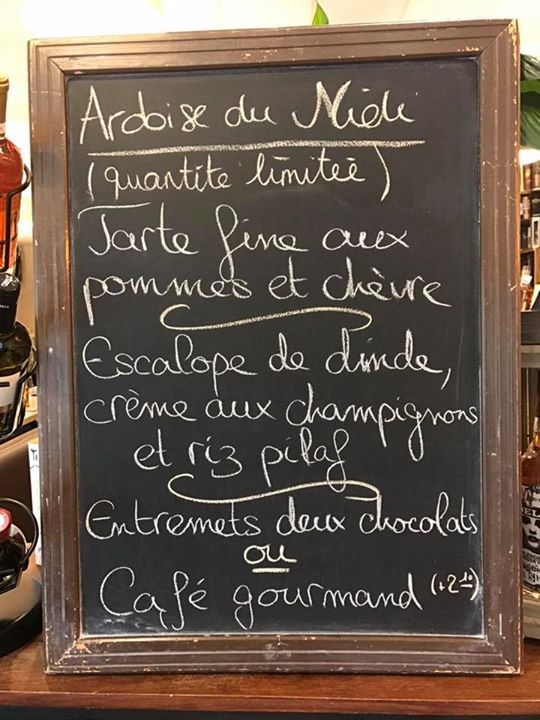 Ardoise du Midi
(quantité limitée)
Tarte fine aux
pommes et chèvre
Escalope de dinde,
crème aux champignons
et riz pilaf
Entremets deux chocolats
ou
Café gourmand (+2€)